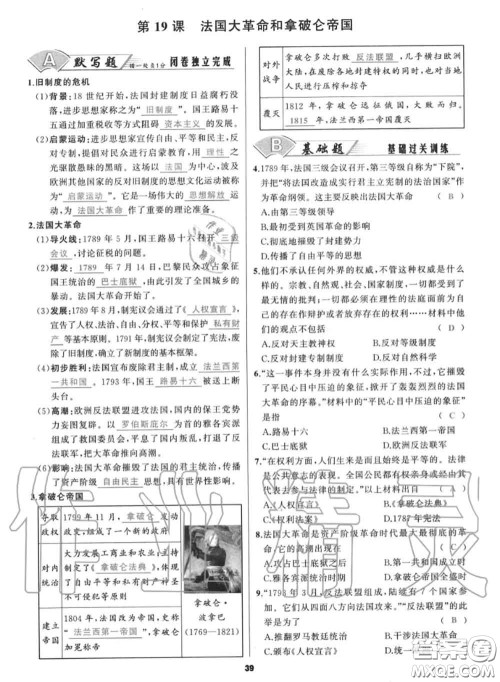 第 19 课　法国大革命和拿破仑帝国
A 默写题 错一处扣1分 闭卷独立完成
1.旧制度的危机
(1)背景:18 世纪开始,法国封建制度日益腐朽没
落,进步思想家称之为“ 旧制度 ”。国王路易十
五通过加重税收等方式阻碍 资本主义 的发展。
(2)启蒙运动:进步思想家宣传自由、平等和民主,反
对专制,提倡对人民群众进行启蒙教育,用 理性 之
光驱散愚昧的黑暗。这场以 法国 为中心,波及
欧洲其他国家的反对旧制度的思想文化运动被称
为“ 启蒙运动 ”。它是一场伟大的 思想解放 运
动,为 法国大革命 作了重要的理论准备。
2.法国大革命
(1)导火线:1789 年 5 月,国王路易十六召开 三级
会议 ,讨论征税的问题。
(2)爆发: 1789 年 7 月 14 日,巴黎民众攻占象征
国王统治的 巴士底狱 ,由此引发了全国城乡的
暴动。法国大革命开始了。
(3)发展:1789年8月,制宪议会通过了《 人权宣言 》,
宣告了人权、法治、自由、分权、平等和保护 私有财
产 等基本原则。1791年,制宪议会制定了宪法,废
除了旧制度,确立了新制度的基本框架。
(4)初步胜利:法国宣布废除君主制,成立 法兰西第
一共和国 。1793 年,国王 路易十六 被送上断
头台。
(5)高潮:欧洲反法联盟进攻法国,国内的保王党势
力妄图复辟。以 罗伯斯庇尔 为首的雅各宾派
组成了救国委员会,平息了国内叛乱,打退了反
法联军,把大革命推向高潮。
(6)影响:法国大革命摧毁了法国的君主统治,传播
了资产阶级 自由民主 思想,具有世界性影响。
3.拿破仑帝国
夺取
政权
1799 年 11 月, 拿破仑 发动
政变,组成了一个新的政府
对内
统治
大力发展工商业和农业,主持
制定了《 拿破仑法典 》,体现
了自由平等和私有财产神圣
不可侵犯等原则
建立
帝国
1804 年,法国改为帝国,史称
“ 法兰西第一帝国 ”,拿破仑
加冕称帝
拿破仑·
波拿巴
(1769—1821)
对外
战争
拿破仑多次打败 反法联盟 ,几乎横扫欧洲
大陆,在历史各地封建特权的同时,也对当地
人民进行压榨和掠夺
覆灭
1812 年,拿破仑远征俄国,大败而归。
1815 年,法兰西第一帝国覆灭
B 基础题 基础过关训练
4.1789年,法国三级会议召开,第三等级自称为“下院”,
并把“将法国改造成实行君主立宪制的法治国家”作
为革命纲领。这主要反映出法国大革命 ( D )
A.由第三等级领导
B.受到英国革命的影响
C.彻底地摧毁了封建势力
D.传播了自由平等的思想
5.他们不承认任何外界的权威,不管这种权威是什么
样的。宗教、自然观、社会、国家制度,一切都受到了
最无情的批判;一切都必须在理性的法庭面前为自
己的存在作辩护或者放弃存在的权利……材料中他
们的观点不包括 ( D )
A.反对天主教神权 B.反对君主权威
C.反对封建专制制度 D.反对自然科学
6.“这一事件本身并没有什么实际作用,不过,它摧毁了
平民心目中压迫的象征,掀开了轰轰烈烈的法国大
革命的序幕。”材料中“平民心目中压迫的象征”是指
( C )
A.路易十六 B.三级会议
C.巴士底狱 D.欧洲反法联盟
7.“在权利方面,人们生来是而且始终是平等的。法律
是公共意志的表现。全国公民都有权亲身或经由其
代表去参与法律的制定。”以上材料出自 ( A )
A.《人权宣言》 B.《拿破仑法典》
C.《权利法案》 D.1787 年宪法
8.法国大革命是资产阶级革命时代最大最彻底的革
命,它的高潮出现在 ( D )
A.攻占巴士底狱之后 B.第一共和国成立
C.雅各宾派统治时期
9.“1793 年 3 月,反法联盟陆续有 7 个国家参加,
它们从四面八方向法国攻来。”“反法联盟”的此举
是为了 ( B )
A.推翻罗马教廷统治 B.干涉法国大革命
C.颁布《人权宣言》
39